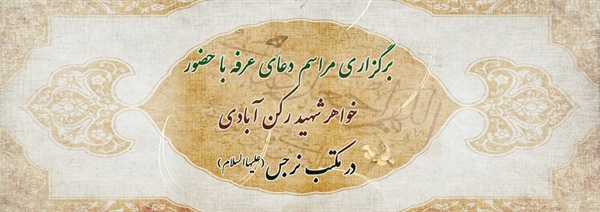 برگزاری مراسم دعای عرفه با حضور
خواهر شهید رکن آبادی
در مکتب نرجس (علیهاالسلام)